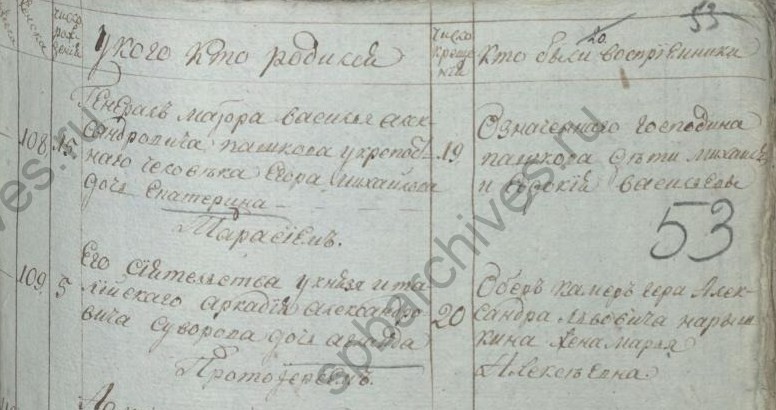 53
20
Число рождений
У кого кто родился
Число крещения
Кто были восприемники
108
15
Генералъ маіора василья алек-
сандровича пашкова у крепост-
наго человѣка Егора михайлова
дочь Екатерина
Тарасіемъ.
19
Означеннаго господина
пашкова дѣти михаилъ
и васильевы
53
109
5
Его сіятельства у князя ита-
лійскаго аркадія александро-
вича суворова дочь
Протоіереемъ.
20
Оберъ камеръ гера Алек-
сандра львовича нарыш-
кина жена марья
Алексѣевна
spbarchives.ru